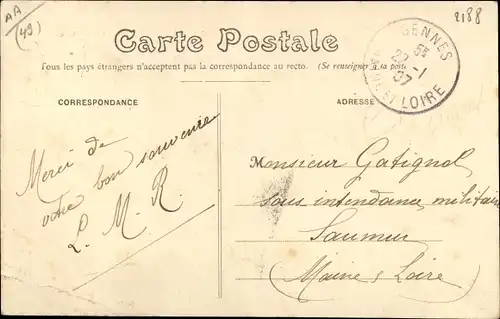 AA
(49)
2188
Carte Postale
Tous les pays étrangers n'acceptent pas la correspondance au recto. (Se renseigner à la poste
CORRESPONDANCE
ADRESSE
GENNES
5E
22 -1
07
MAINE ET LOIRE
Merci de
votre bon souvenir
L. M. R.
Monsieur Gatignol
sous intendance militaire
Saumur
(Maine & Loire)